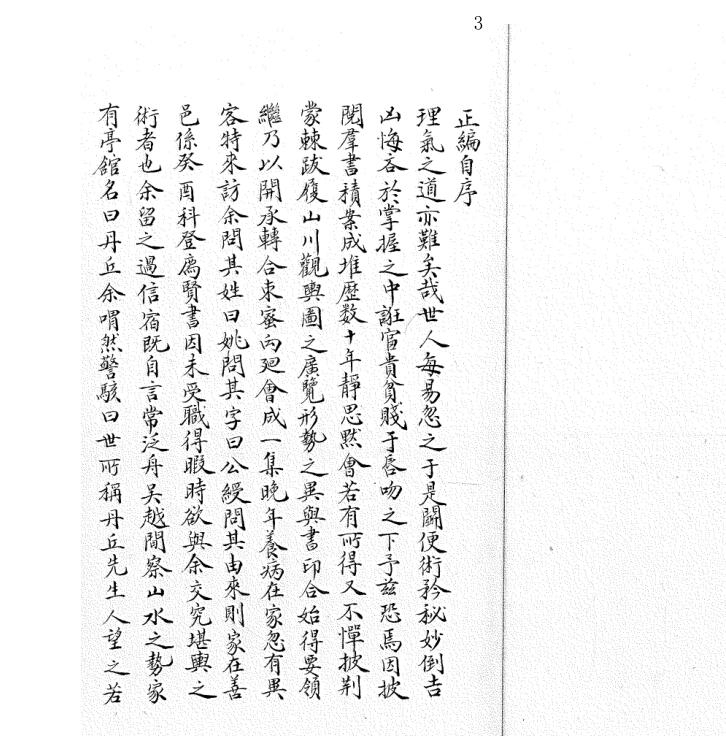 3
正編自序
理氣之道亦難矣哉世人每易忽之于是鬭便術矜秘妙倒吉
凶悔吝於掌握之中誑官貴貧賤于唇吻之下予兹恐焉因披
閱羣書積業成堆歷数十年靜思黙會若有所得又不憚披荆
蒙棘跋履山川觀輿圖之廣覽形勢之異與書印合始得要領
繼乃以開承轉合東蜜向廻會成一集晚年養病在家忽有異
客特來訪余問其姓曰姚問其字曰公綬問其由來則家在善
邑係癸酉科登鳫賢書因未受職得暇時欲與余交究堪輿之
術者也余留之過信宿既自言常泛舟吴越間察山水之勢家
有亭館名曰丹丘余喟然警駭曰世所稱丹丘先生人望之若